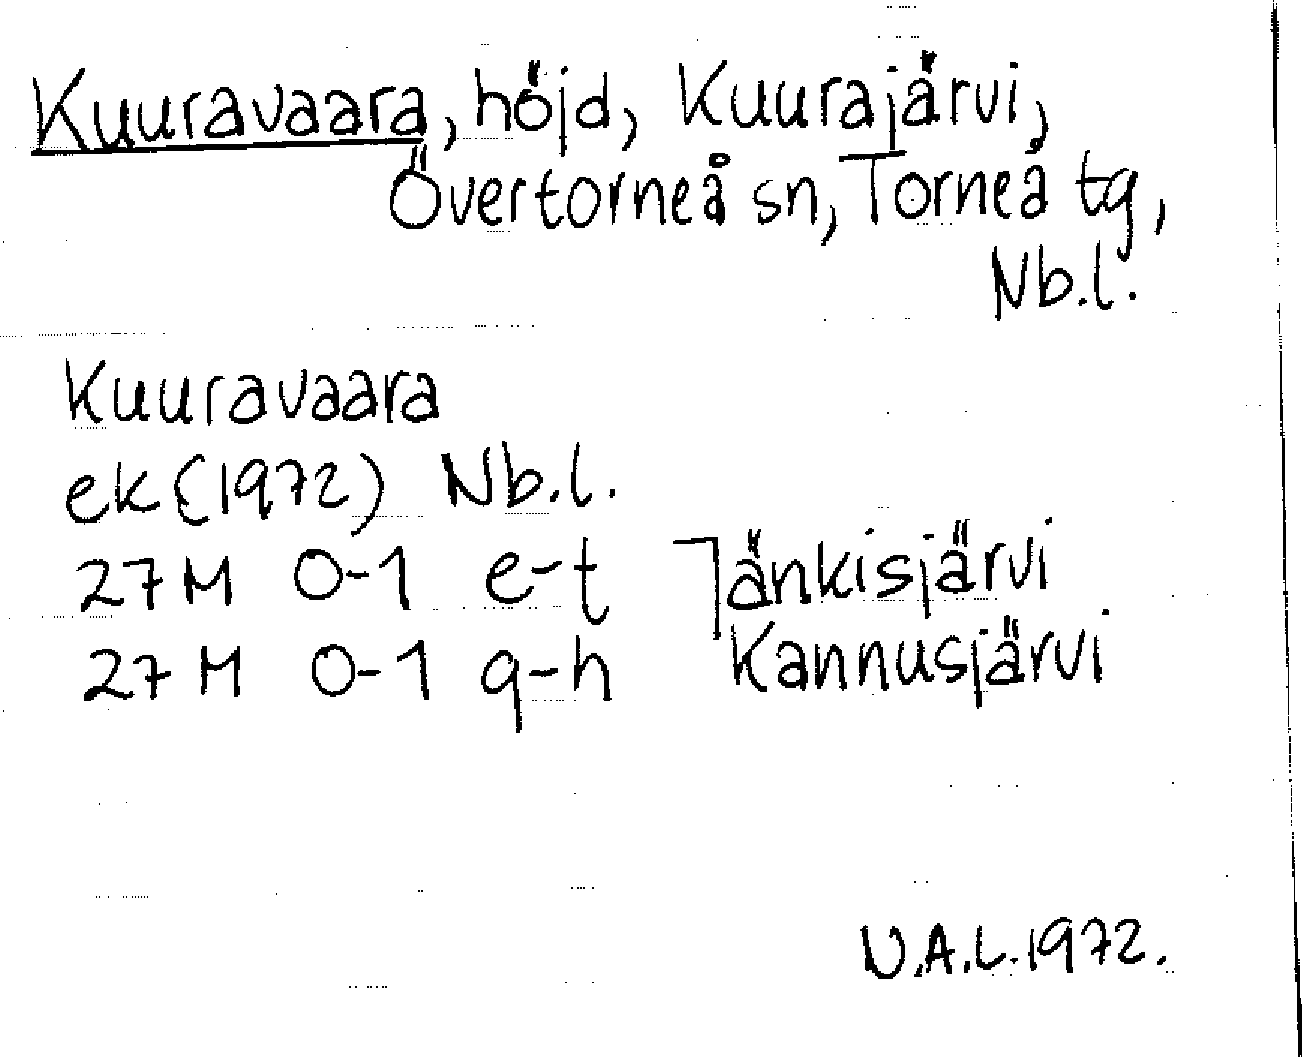 Kuuravaara, höjd, Kuurajärvi,
Övertorneå sn, Torneå tg,
Nb.l.
Kuuravaara
ek (1972) Nb.l.
27 M 0-1 e-t Jänkisjärvi
27 M 0-1 g-h Kannusjärvi
U.A.L. 1972.